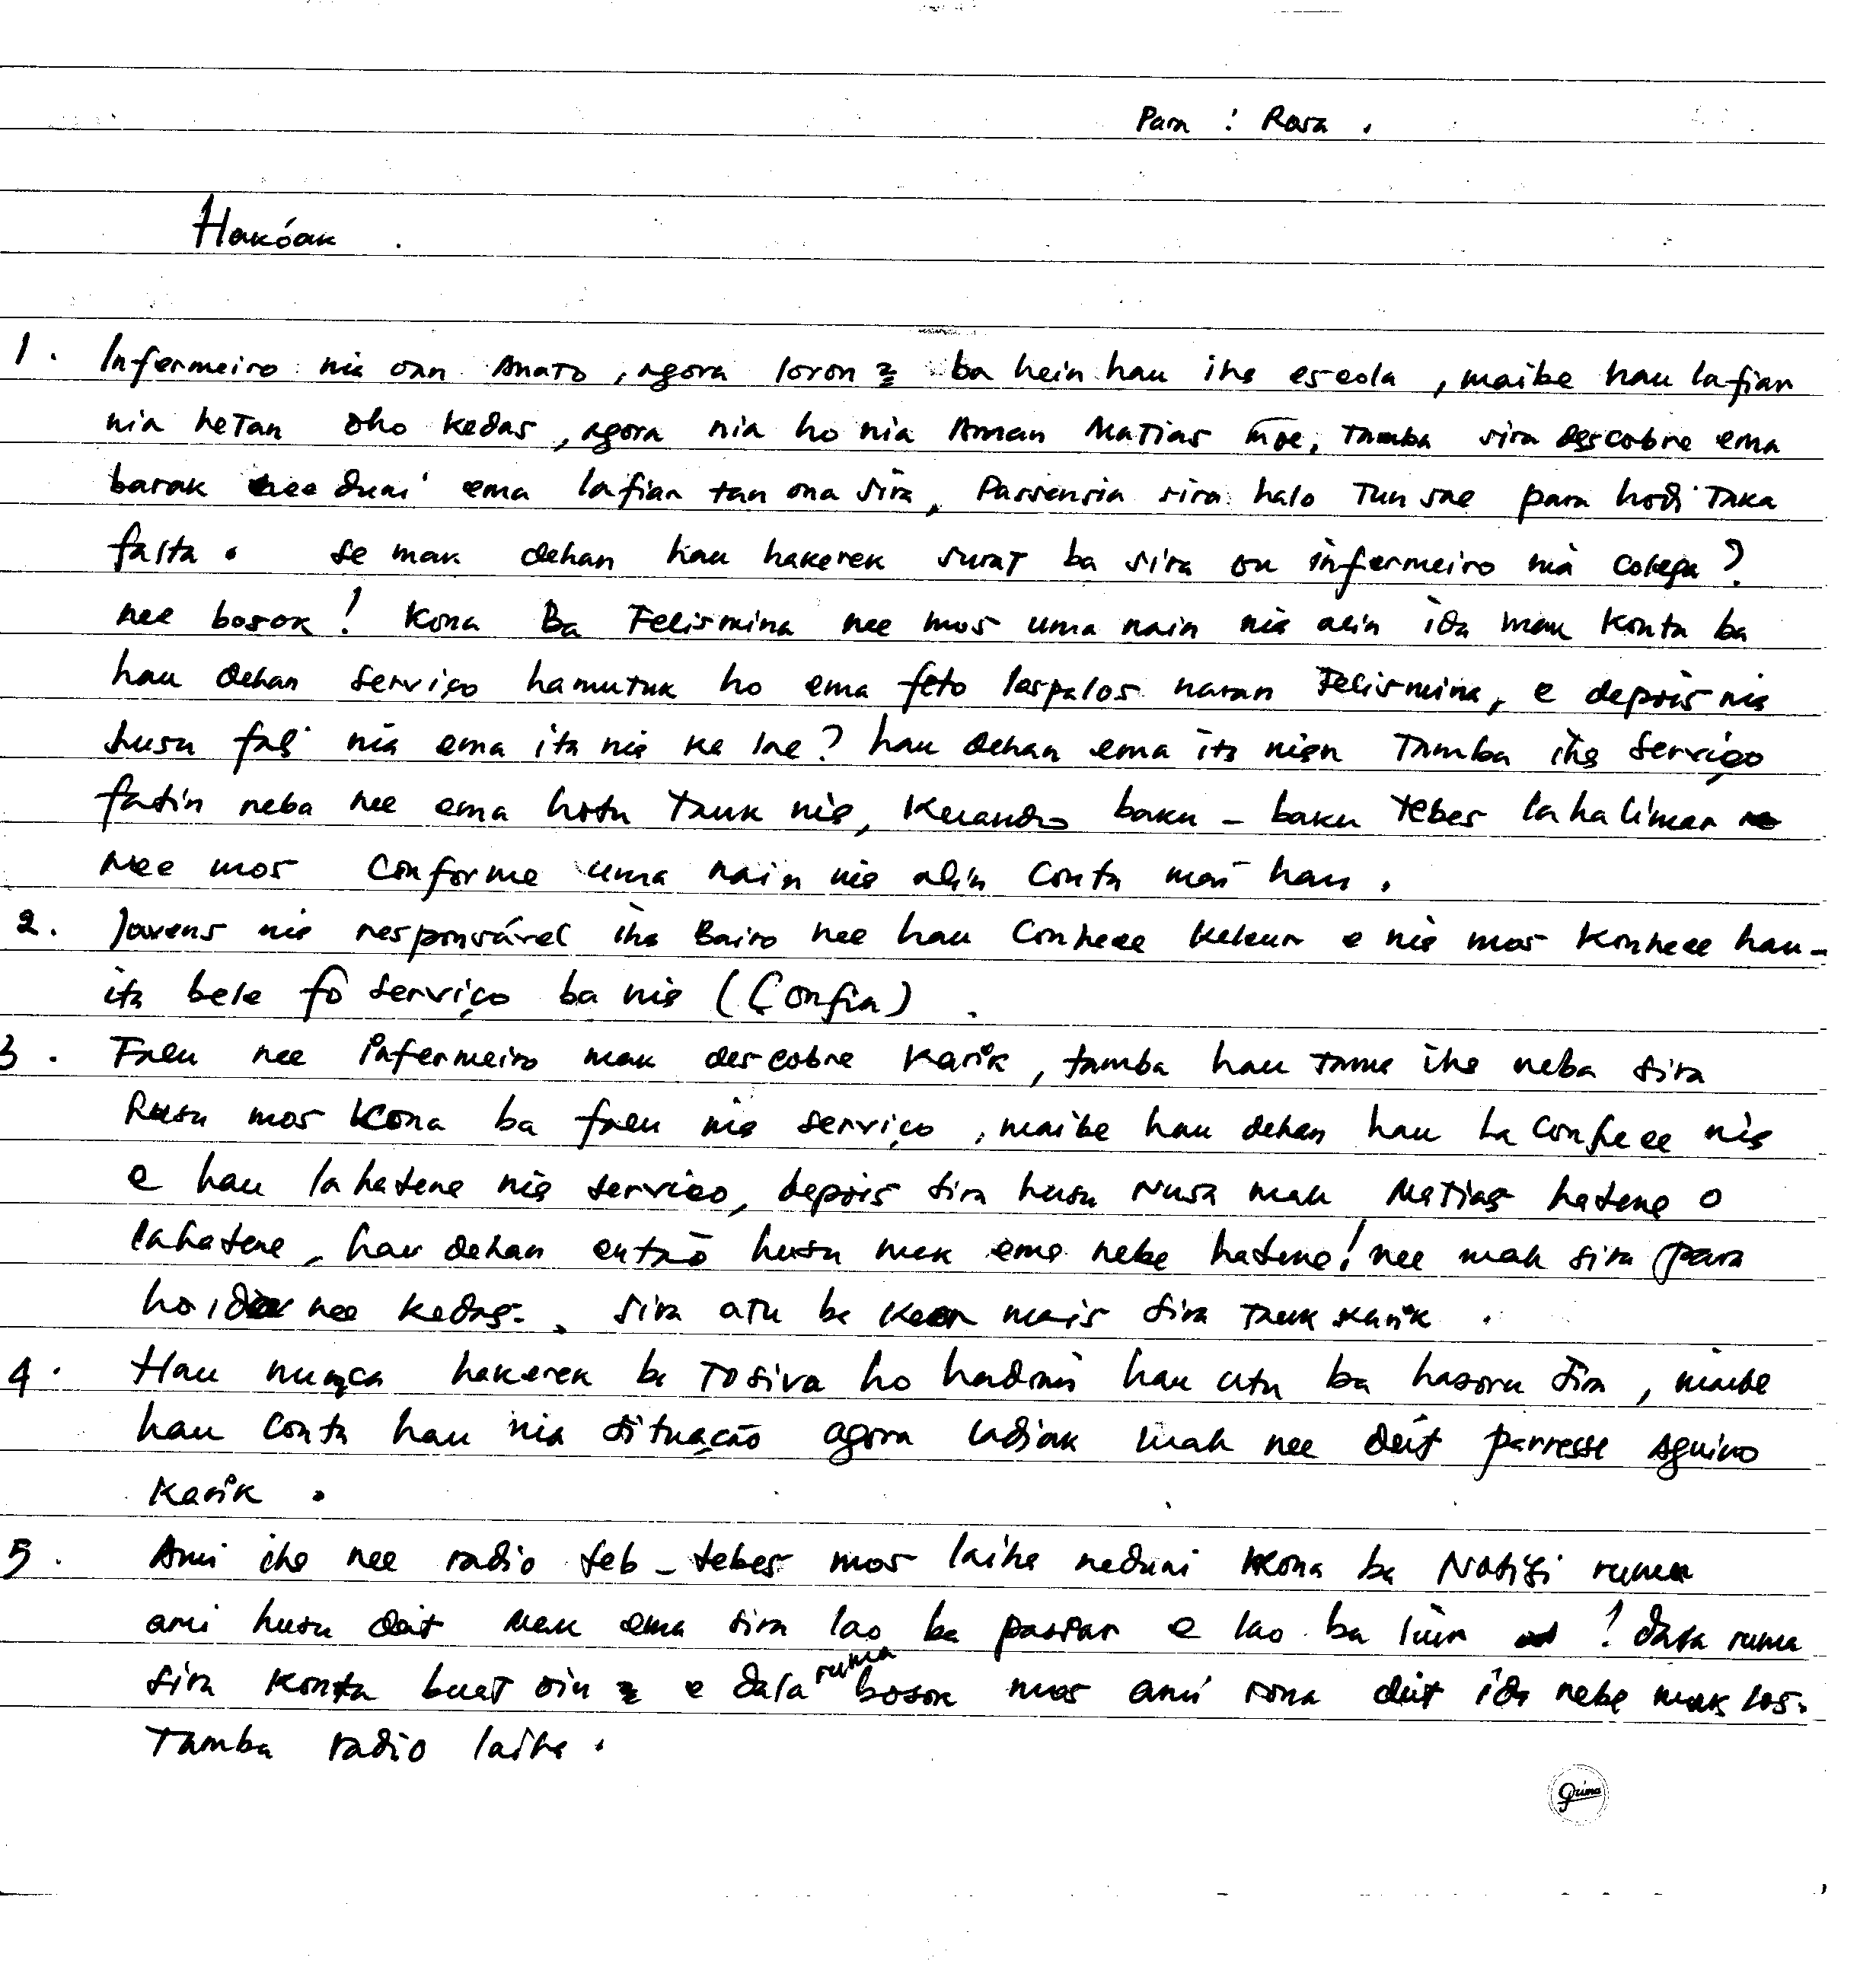 Para : Rosa .
Hakóak .
1. Infermeiro nia oan Anato, agora loron 2 ba hein hau iha escola, maibe hau lafian
nia hetan oho kedas, agora nia ho nia Aman Matias moe, Tamba sira descobre ema
barak nee duni ema lafian tan ona sira, Passensia sira halo Tun sae para hodi Taka
falta. Se mak dehan hau hakerek surat ba sira ou infermeiro nia colega?
nee bosok! Kona Ba Felismina nee mos uma nain nia alin ida mak Konta ba
hau dehan serviço hamutuk ho ema feto laspalos naran Felismina, e depois nia
husu fali nia ema ita nia ka lae? hau dehan ema ita nian Tamba iha Serviço
fatin neba nee ema hotu Tauk nia, Kuando baku - baku Tebes la halimar
nee mos Conforme uma nain nia alin Conta mai hau.
2. Jovens nia responsável iha Bairo nee hau Conhece Keleur e nia mos Konhece hau -
ita bele fó serviço ba nia (Confia) .
3. Falu nee infermeiro mak descobre Karik, tamba hau tama iha neba sira
Rusu mos Kona ba falu nia serviço, maibe hau dehan hau La Conhece nia
e hau la hatene nia servico, depois sira husu Nusa mak Matias hatene o
lahatene, hau dehan então husu mak ema nebe hatene! nee mak sira para
ho nee kedas. Sira atu ba mais sira Tauk Karik .
4. Hau nunca hakerek ba To siva ho hau atu ba hasoru sira, maibe
hau Conta hau nia situação agora ladiak mak nee deit parresse Aguino
Karik .
5. Ami iha nee radio teb - tebes mos laiha neduni Kona ba Notisi ruma
ami husu deit mak ema sira lao ba passar e lao ba liur ! dala ruma
sira Konta buat oin 2 e dala ruma bosok mos ami rona deit ida nebe mak los.
Tamba radio laiha .
Prima